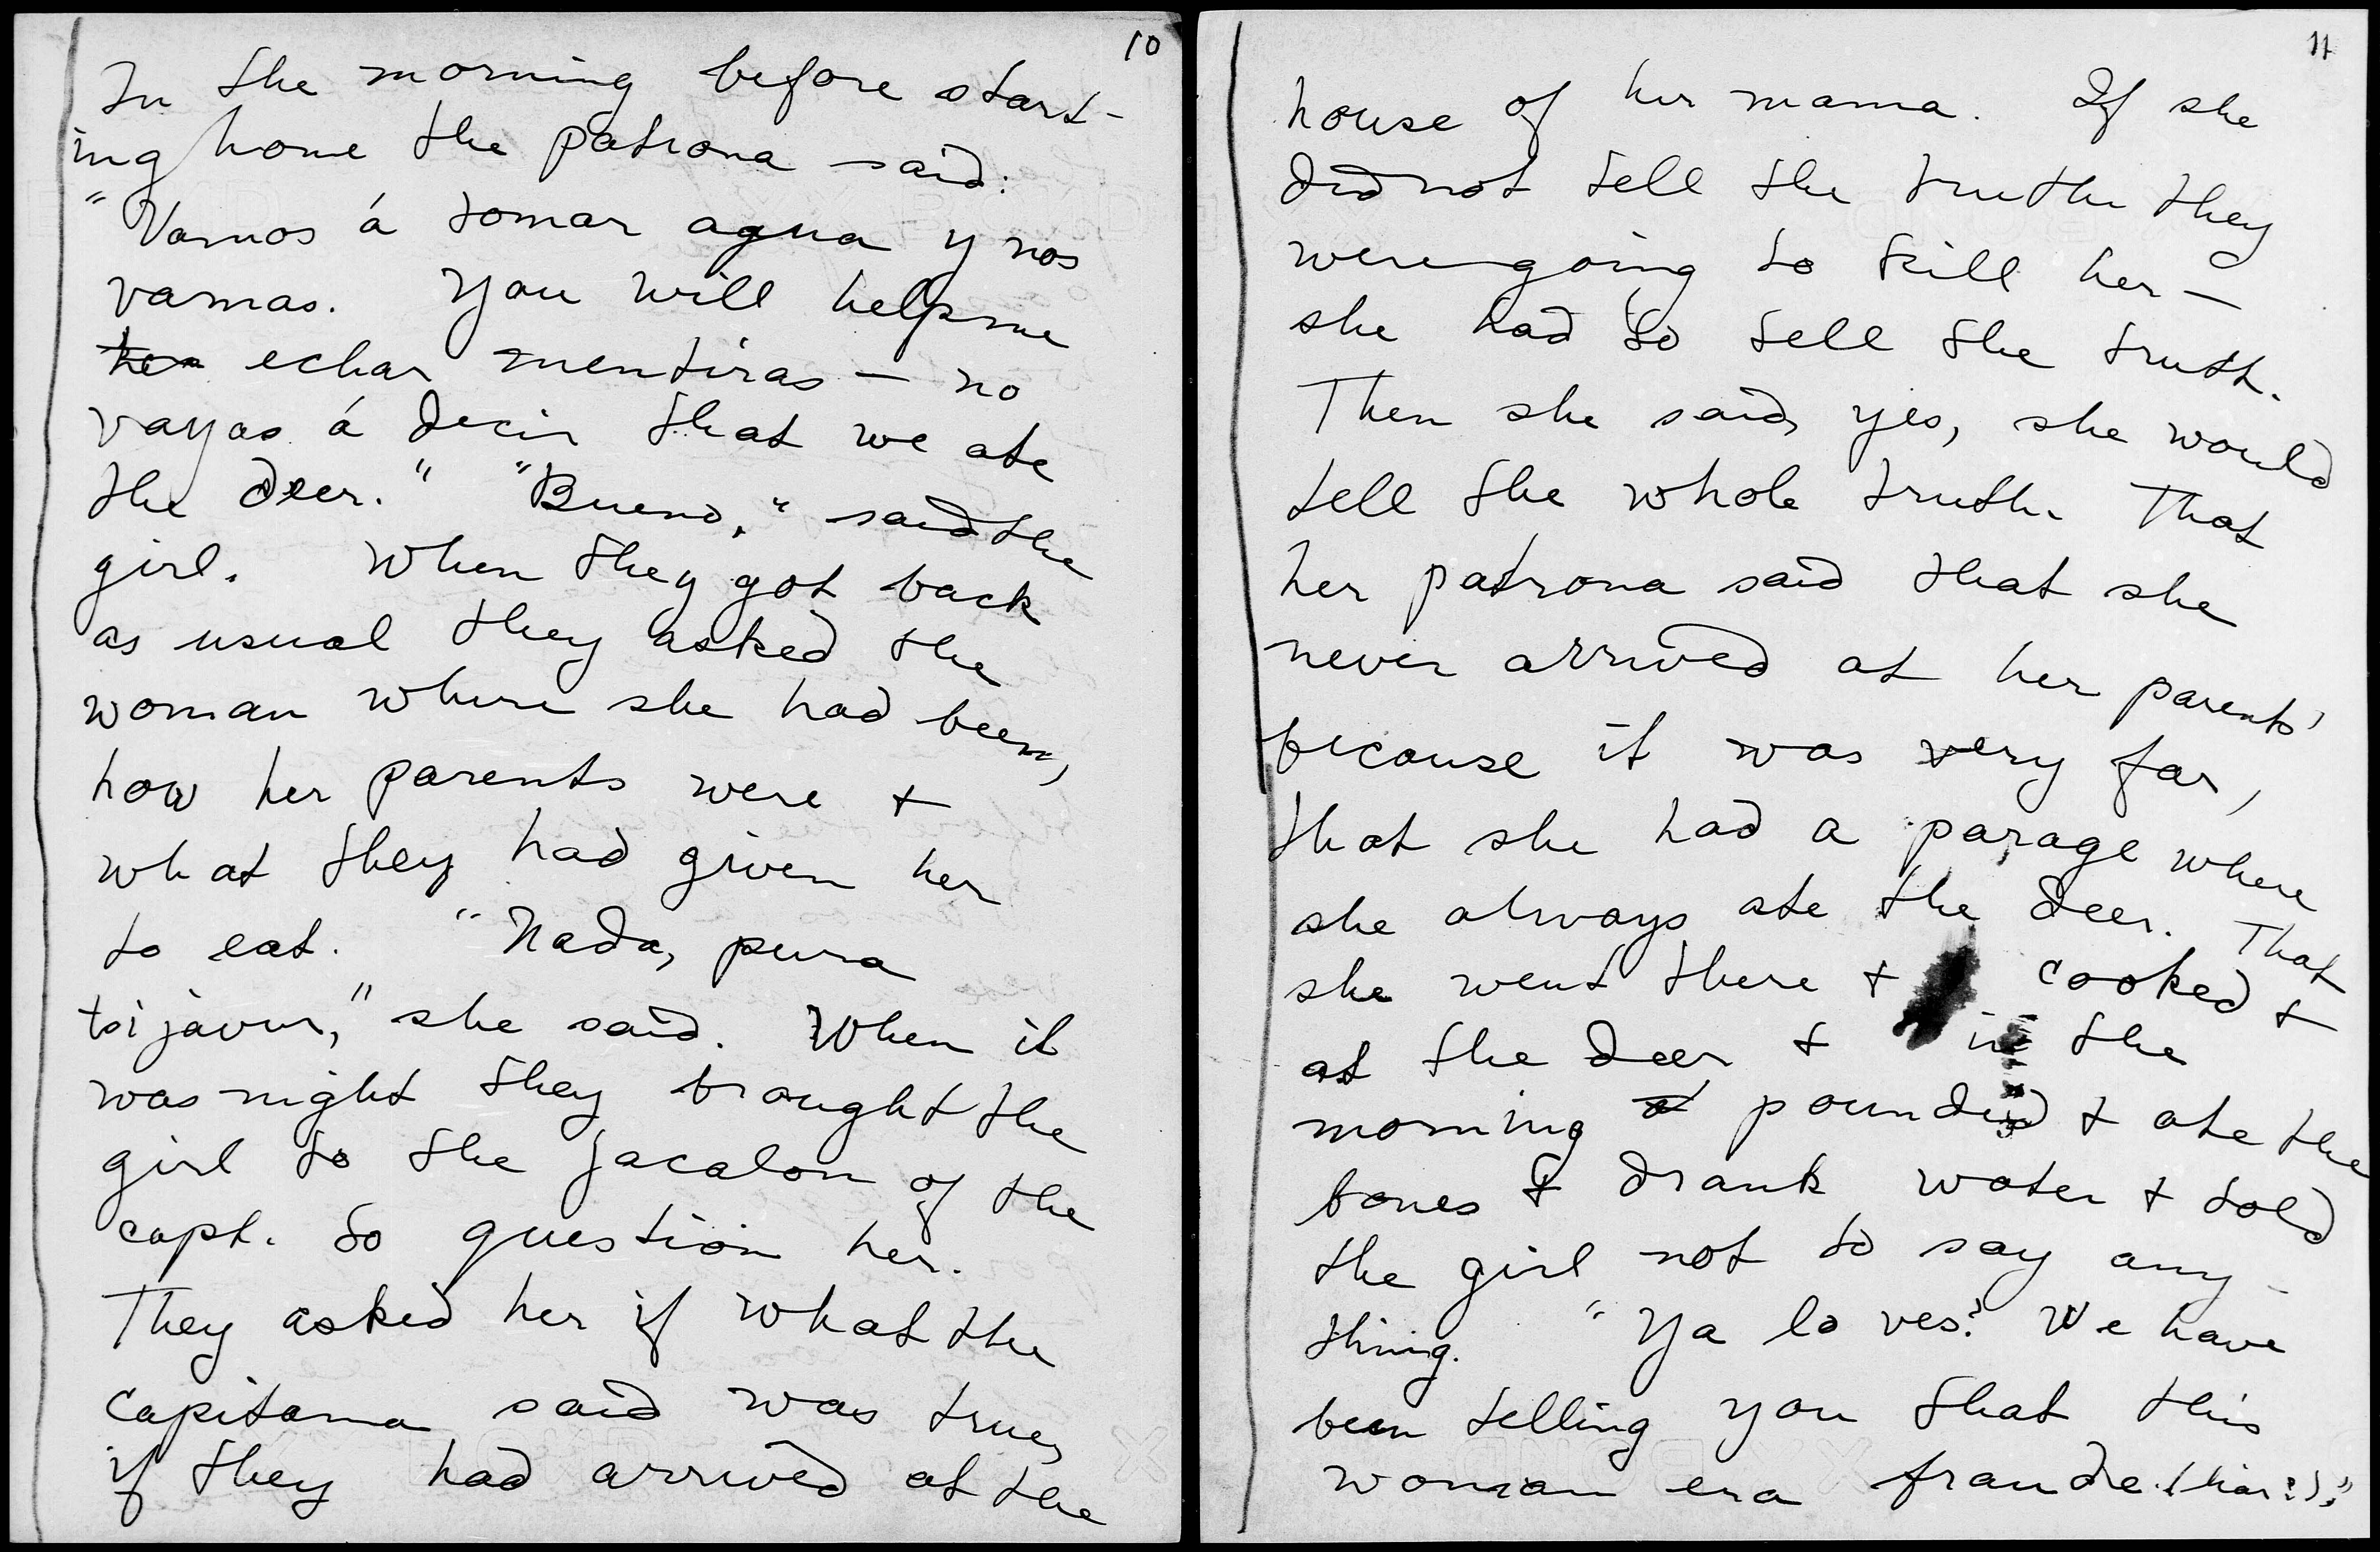 10
In the morning before start-
ing home the patrona said:
"Vamos á tomar agua y nos
vamas. You will help me
her echar mentiras — no
vayas á decir that we ate
the deer." "Bueno," said the
girl. When they got back
as usual they asked the
woman where she had been,
how her parents were +
what they had given her
to eat. "Nada, pura
tsijavur," she said. When it
was night they brought the
girl to the jacalon of the
capt. to question her.
They asked her if what the
capitana said was true,
if they had arrived at the
11
house of her mama. If she
did not tell the truth they
were going to kill her —
she had to tell the truth.
Then she said, yes, she would
tell the whole truth. That
her patrona said that she
never arrived at her parents'
because it was very far,
that she had a parage where
she always ate the deer. That
she went there + cooked +
at the deer + in the
morning pounded + ate the
bones & drank water + told
the girl not to say any-
thing. "Ya lo ves? We have
been telling you that this
woman era fraude (liar?)."